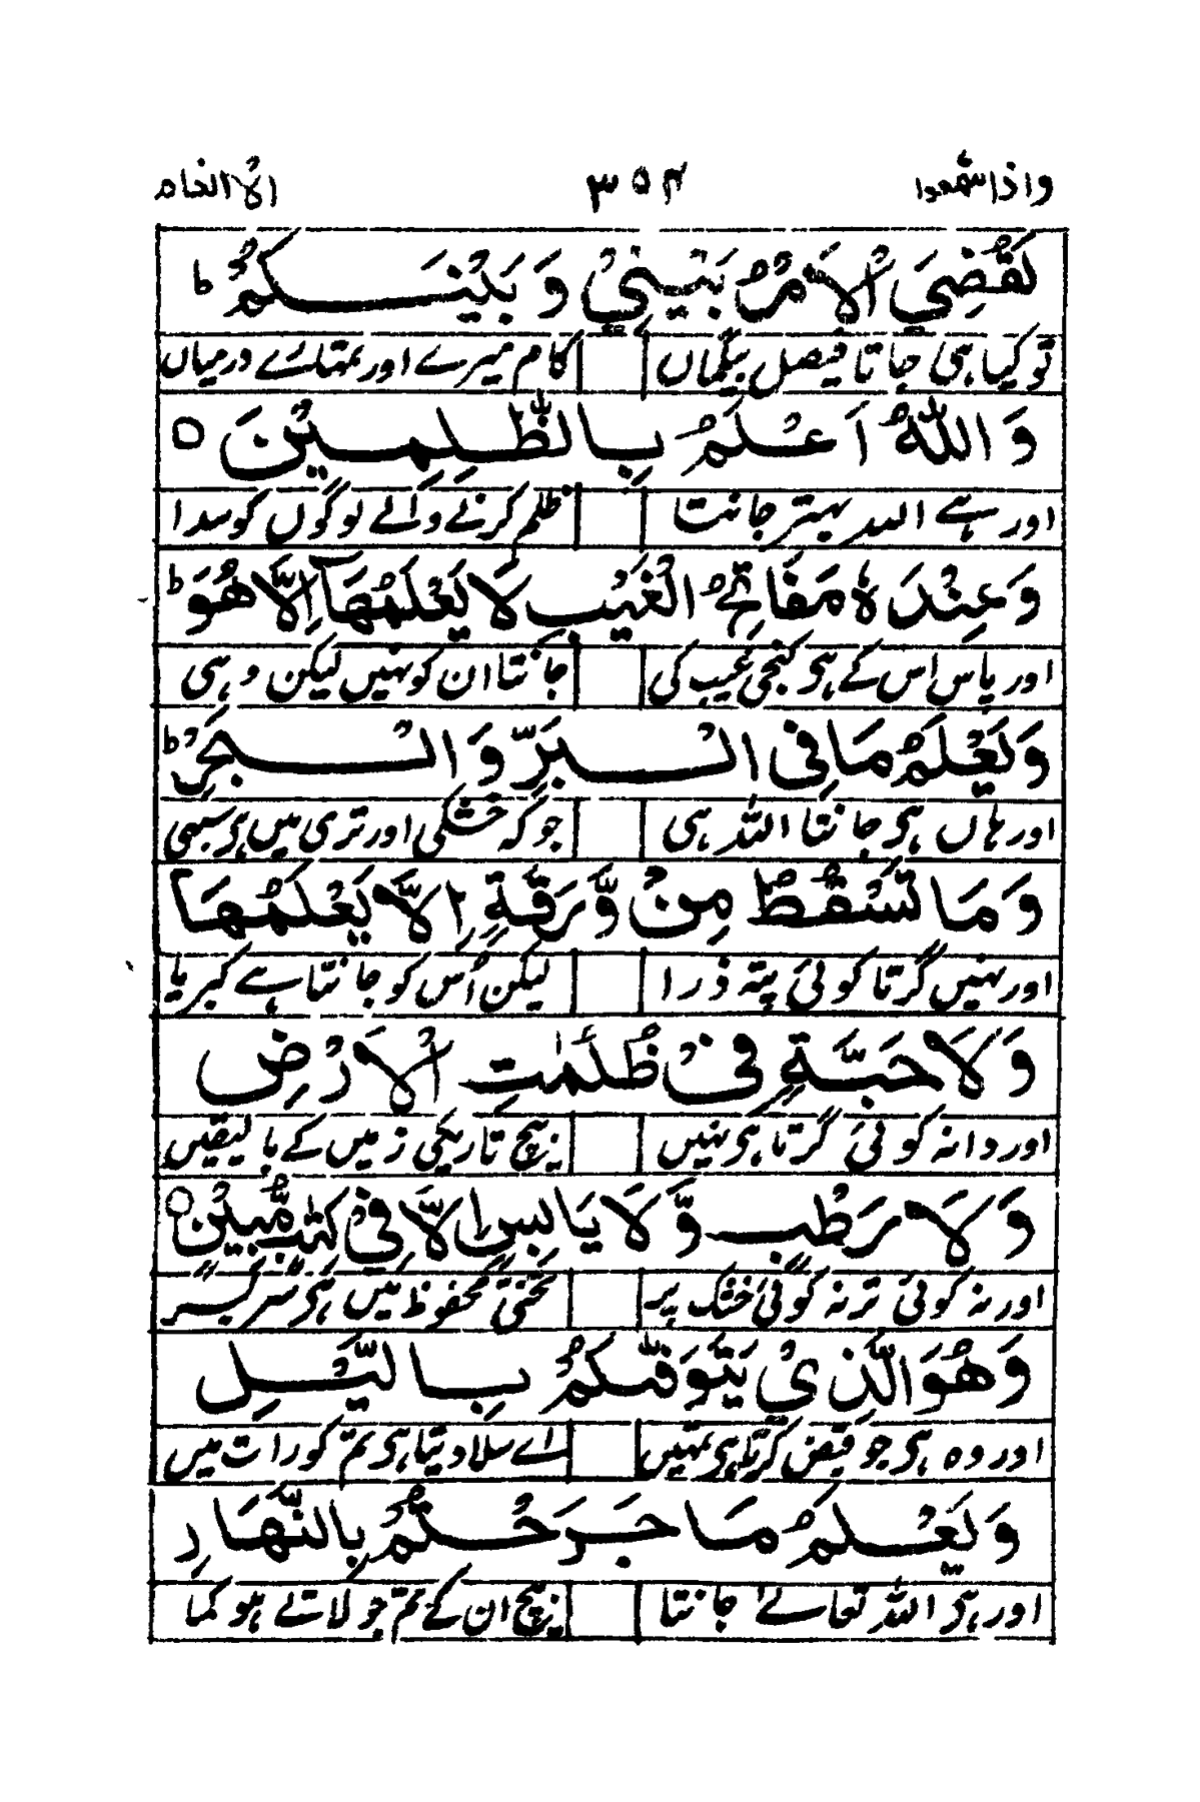 واذاسمعوا ۳۵۴ الانعام
لَقُضِيَ الْاَمْرُ بَيْنِيْ وَبَيْنَكُمْ ؕ
تو کیا ہی جاتا فیصل بیگماں کام میرے اور تمہارے درمیاں
وَاللّٰهُ اَعْلَمُ بِالظّٰلِمِيْنَ ○
اور ہے اللہ بہتر جانتا ظلم کرنے والے لوگوں کو سدا
وَعِنْدَهٗ مَفَاتِحُ الْغَيْبِ لَا يَعْلَمُهَآ اِلَّا هُوَ ؕ
اور پاس اس کے ہی کنجی غیب کی جانتا ان کو نہیں لیکن وہی
وَيَعْلَمُ مَا فِى الْبَرِّ وَالْبَحْرِ ؕ
اور ہاں ہی جانتا اللہ ہی جو کہ خشکی اور تری میں ہی سبھی
وَمَا تَسْقُطُ مِنْ وَّرَقَةٍ اِلَّا يَعْلَمُهَا
اور نہیں گرتا کوئی پتہ ذرا لیکن اُس کو جانتا ہے کبریا
وَلَا حَبَّةٍ فِيْ ظُلُمٰتِ الْاَرْضِ
اور دانہ کوئی گرتا ہی نہیں بیچ تاریکی زمیں کے بالیقیں
وَلَا رَطْبٍ وَّلَا يَابِسٍ اِلَّا فِيْ كِتٰبٍ مُّبِيْنٍ ○
اور نہ کوئی تر نہ کوئی خشک پر تختی محفوظ میں ہی سر بسر
وَهُوَ الَّذِيْ يَتَوَفّٰىكُمْ بِالَّيْلِ
اور وہ ہی جو قبض کرتا ہی تمہیں اے سلا دیتا ہی تم کو رات میں
وَيَعْلَمُ مَا جَرَحْتُمْ بِالنَّهَارِ
اور ہی اللہ تعالےٰ جانتا بیچ ان کے تم جو لاتے ہو کما